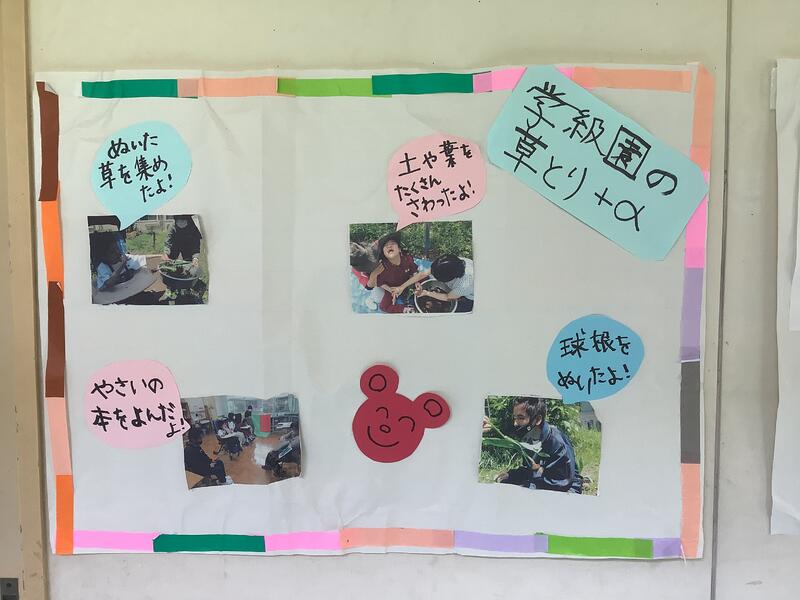 学級園の
草とり+α
ぬいた
草を集め
たよ!
土や葉を
たくさん
さわったよ!
やさいの
本をよんだ
よ!
球根を
ぬいたよ!